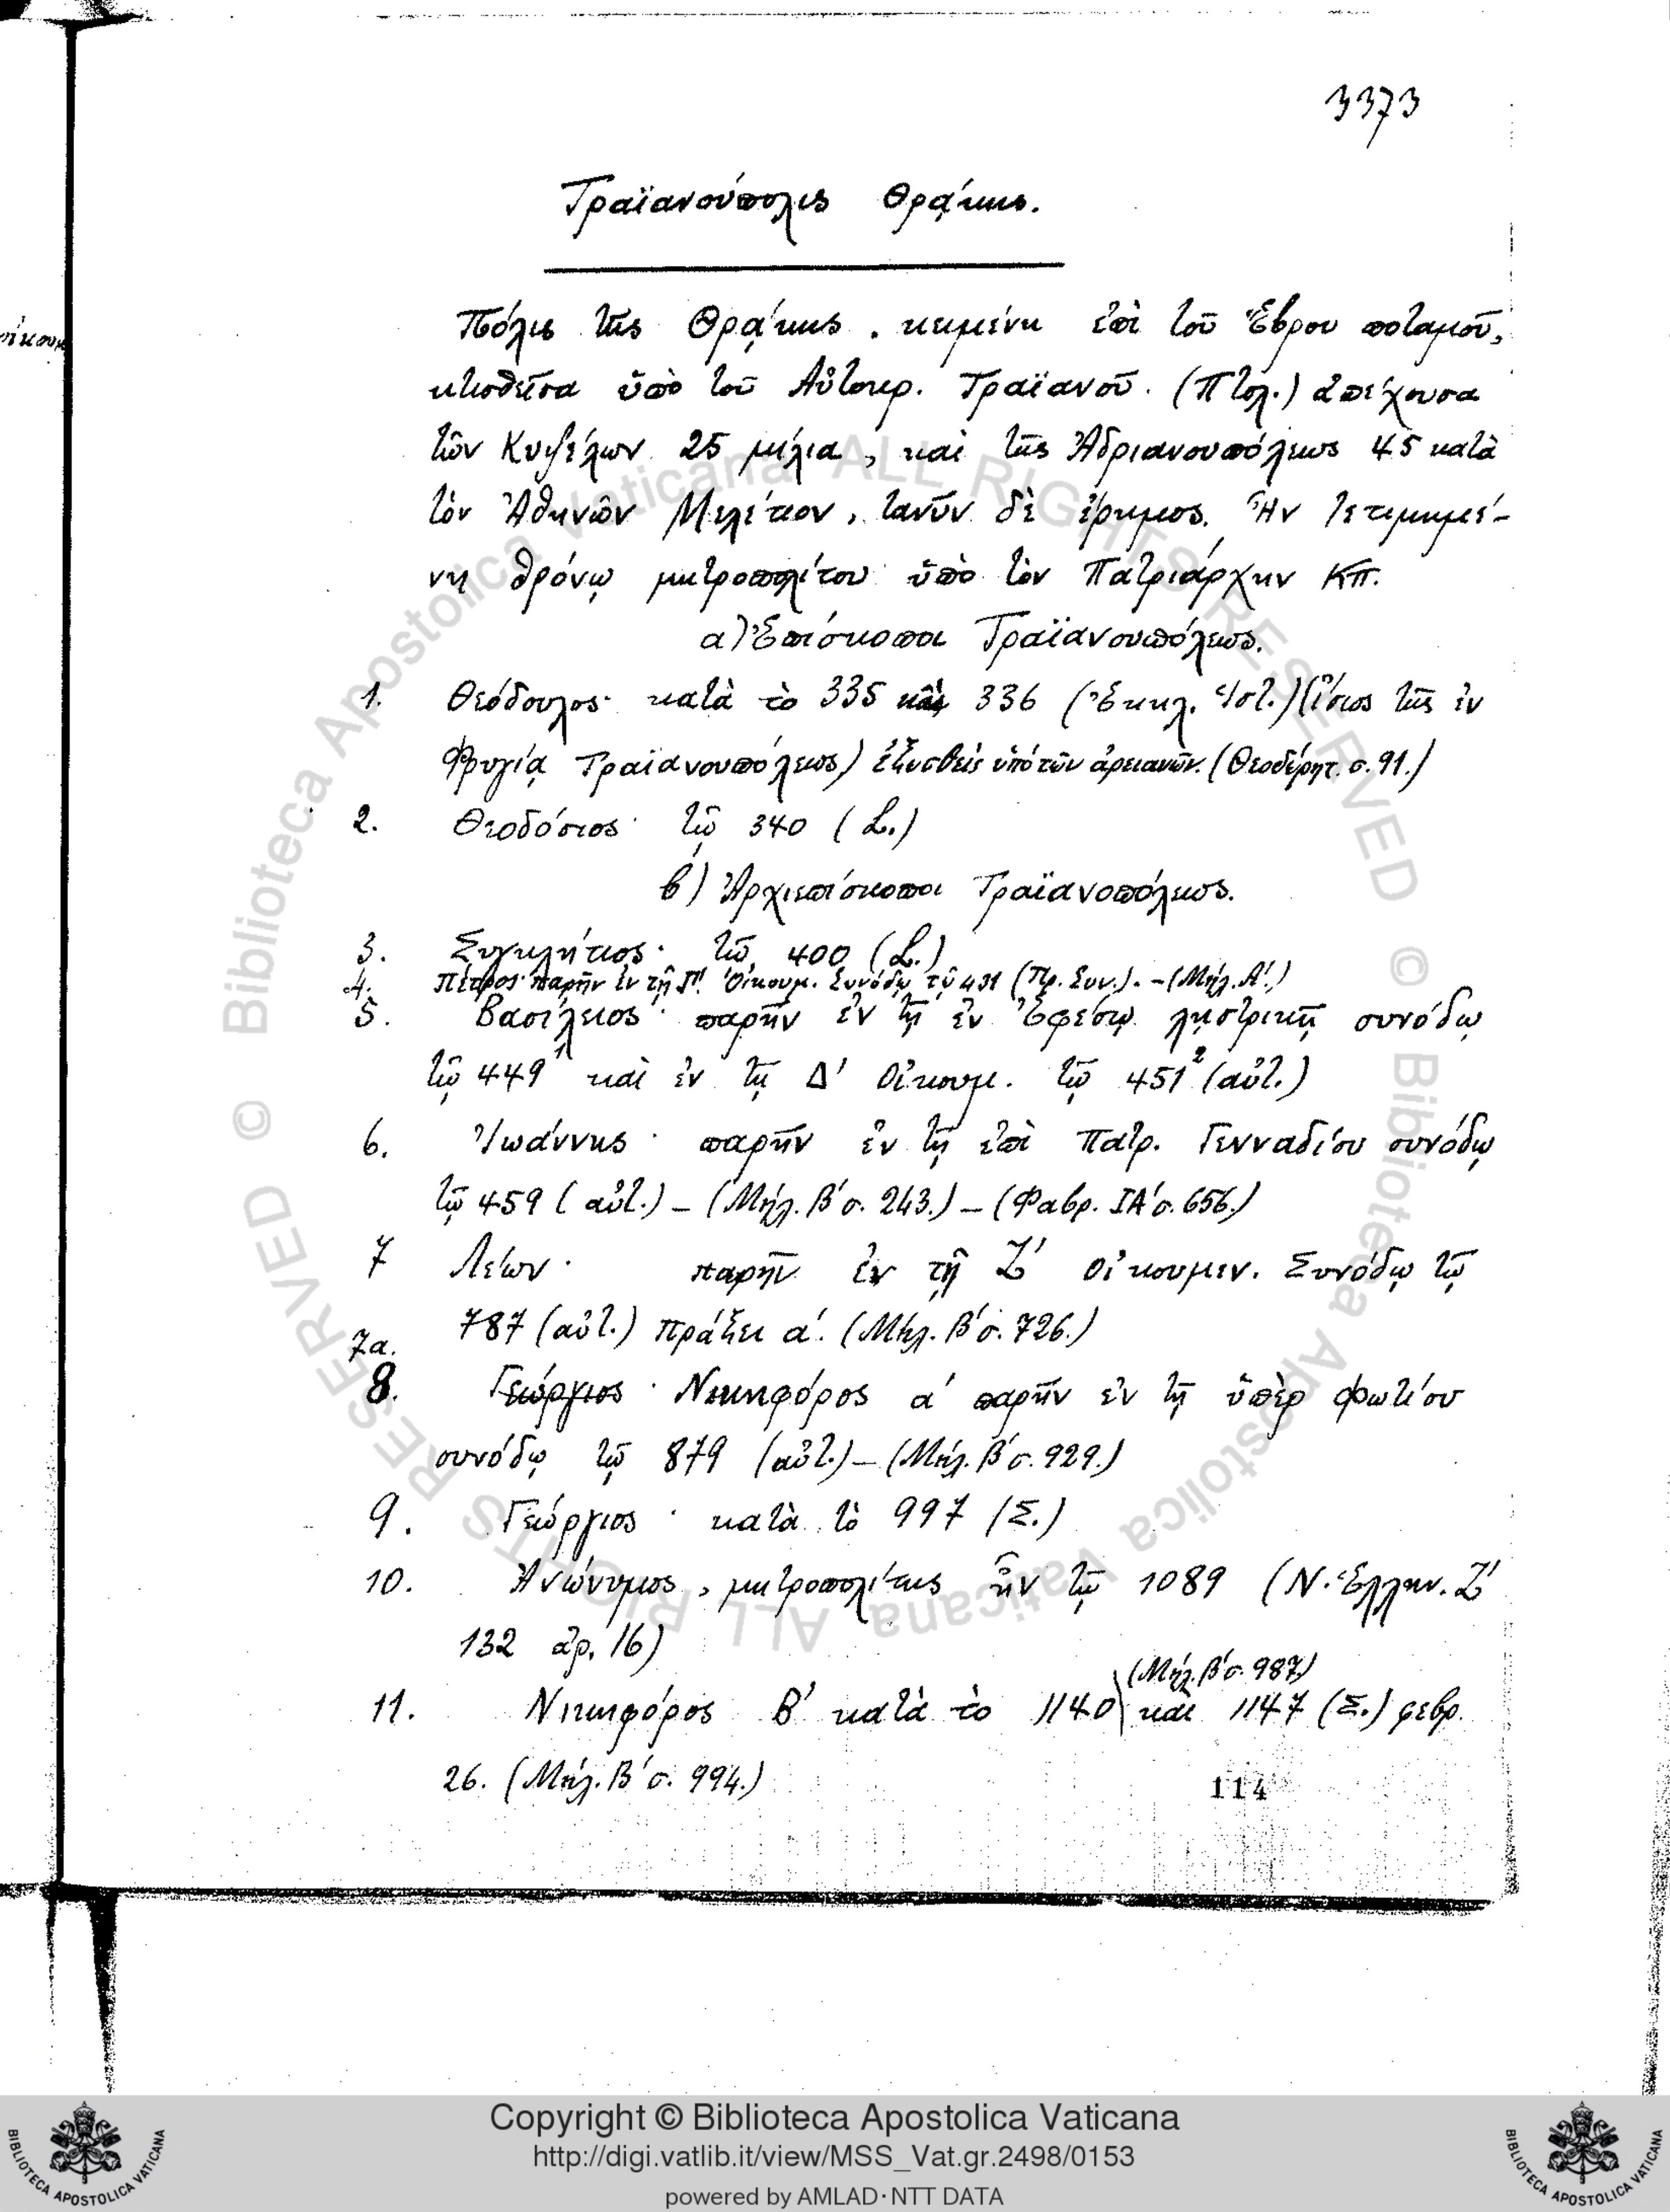 3373
Τραϊανούπολις Θρᾴκης.
οἰκουμ
Πόλις τῆς Θρᾴκης, κειμένη ἐπὶ τοῦ Ἕβρου ποταμοῦ,
κτισθεῖσα ὑπὸ τοῦ Αὐτοκρ. Τραϊανοῦ. (Πτολ.) ἀπέχουσα
τῶν Κυψέλων 25 μίλια, καὶ τῆς Ἀδριανουπόλεως 45 κατὰ
τὸν Ἀθηνῶν Μελέτιον, τανῦν δὲ ἔρημος. Ἦν τετιμημέ-
νη θρόνῳ μητροπολίτου ὑπὸ τὸν Πατριάρχην ΚΠ.
α) Ἐπίσκοποι Τραϊανουπόλεως.
1. Θεόδουλος· κατὰ τὸ 335 καὶ 336 (Ἐκκλ. Ἱστ.) (ἴσως τῆς ἐν
Φρυγίᾳ Τραϊανουπόλεως) ἐξωσθεὶς ὑπὸ τῶν ἀρειανῶν. (Θεοδώρητ. σ. 91.)
2. Θεοδόσιος· τῷ 340 (L.)
β') Ἀρχιεπίσκοποι Τραϊανοπόλεως.
3. Συγκλήτιος· τῷ 400 (L.)
4. Πέτρος· παρῆν ἐν τῇ Γ' Οἰκουμ. Συνόδῳ τῷ 431 (Πρ. Συν.). – (Μήλ. Α'.)
5. Βασίλειος· παρῆν ἐν τῇ ἐν Ἐφέσῳ λῃστρικῇ συνόδῳ
τῷ 449¹ καὶ ἐν τῇ Δ' Οἰκουμ. τῷ 451² (αὐτ.)
6. Ἰωάννης· παρῆν ἐν τῇ ἐπὶ Πατρ. Γενναδίου συνόδῳ
τῷ 459 (αὐτ.) – (Μήλ. Β' σ. 243.) – (Φαβρ. ΙΑ' σ. 656.)
7 Λέων· παρῆν ἐν τῇ Ζ' Οἰκουμεν. Συνόδῳ τῷ
787 (αὐτ.) πράξει α'. (Μήλ. Β' σ. 726.)
7α.
8. Γεώργιος· Νικηφόρος α' παρῆν ἐν τῇ ὑπὲρ Φωτίου
συνόδῳ τῷ 879 (αὐτ.) – (Μήλ. Β' σ. 929.)
9. Γεώργιος· κατὰ τὸ 997 (Σ.)
10. Ἀνώνυμος, μητροπολίτης ἦν τῷ 1089 (Ν. Ἑλλην. Ζ'
132 ἀρ. 16)
(Μήλ. Β' σ. 987.)
11. Νικηφόρος Β' κατὰ τὸ 1140 καὶ 1147 (Σ.) φεβρ.
26. (Μήλ. Β' σ. 994.)
114
© Biblioteca Apostolica Vaticana ALL RIGHTS RESERVED © Biblioteca Apostolica Vaticana ALL RIGHTS RESERVED
Copyright © Biblioteca Apostolica Vaticana
http://digi.vatlib.it/view/MSS_Vat.gr.2498/0153
powered by AMLAD·NTT DATA
BIBLIOTECA APOSTOLICA VATICANA
BIBLIOTECA APOSTOLICA VATICANA